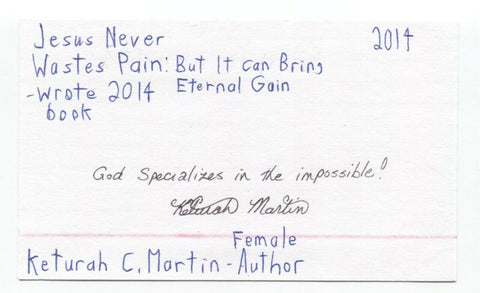 Jesus Never 2014
Wastes Pain: But It Can Bring
-Wrote 2014 Eternal Gain
book
God Specializes in the impossible!
Keturah Martin
Female
Keturah C. Martin - Author